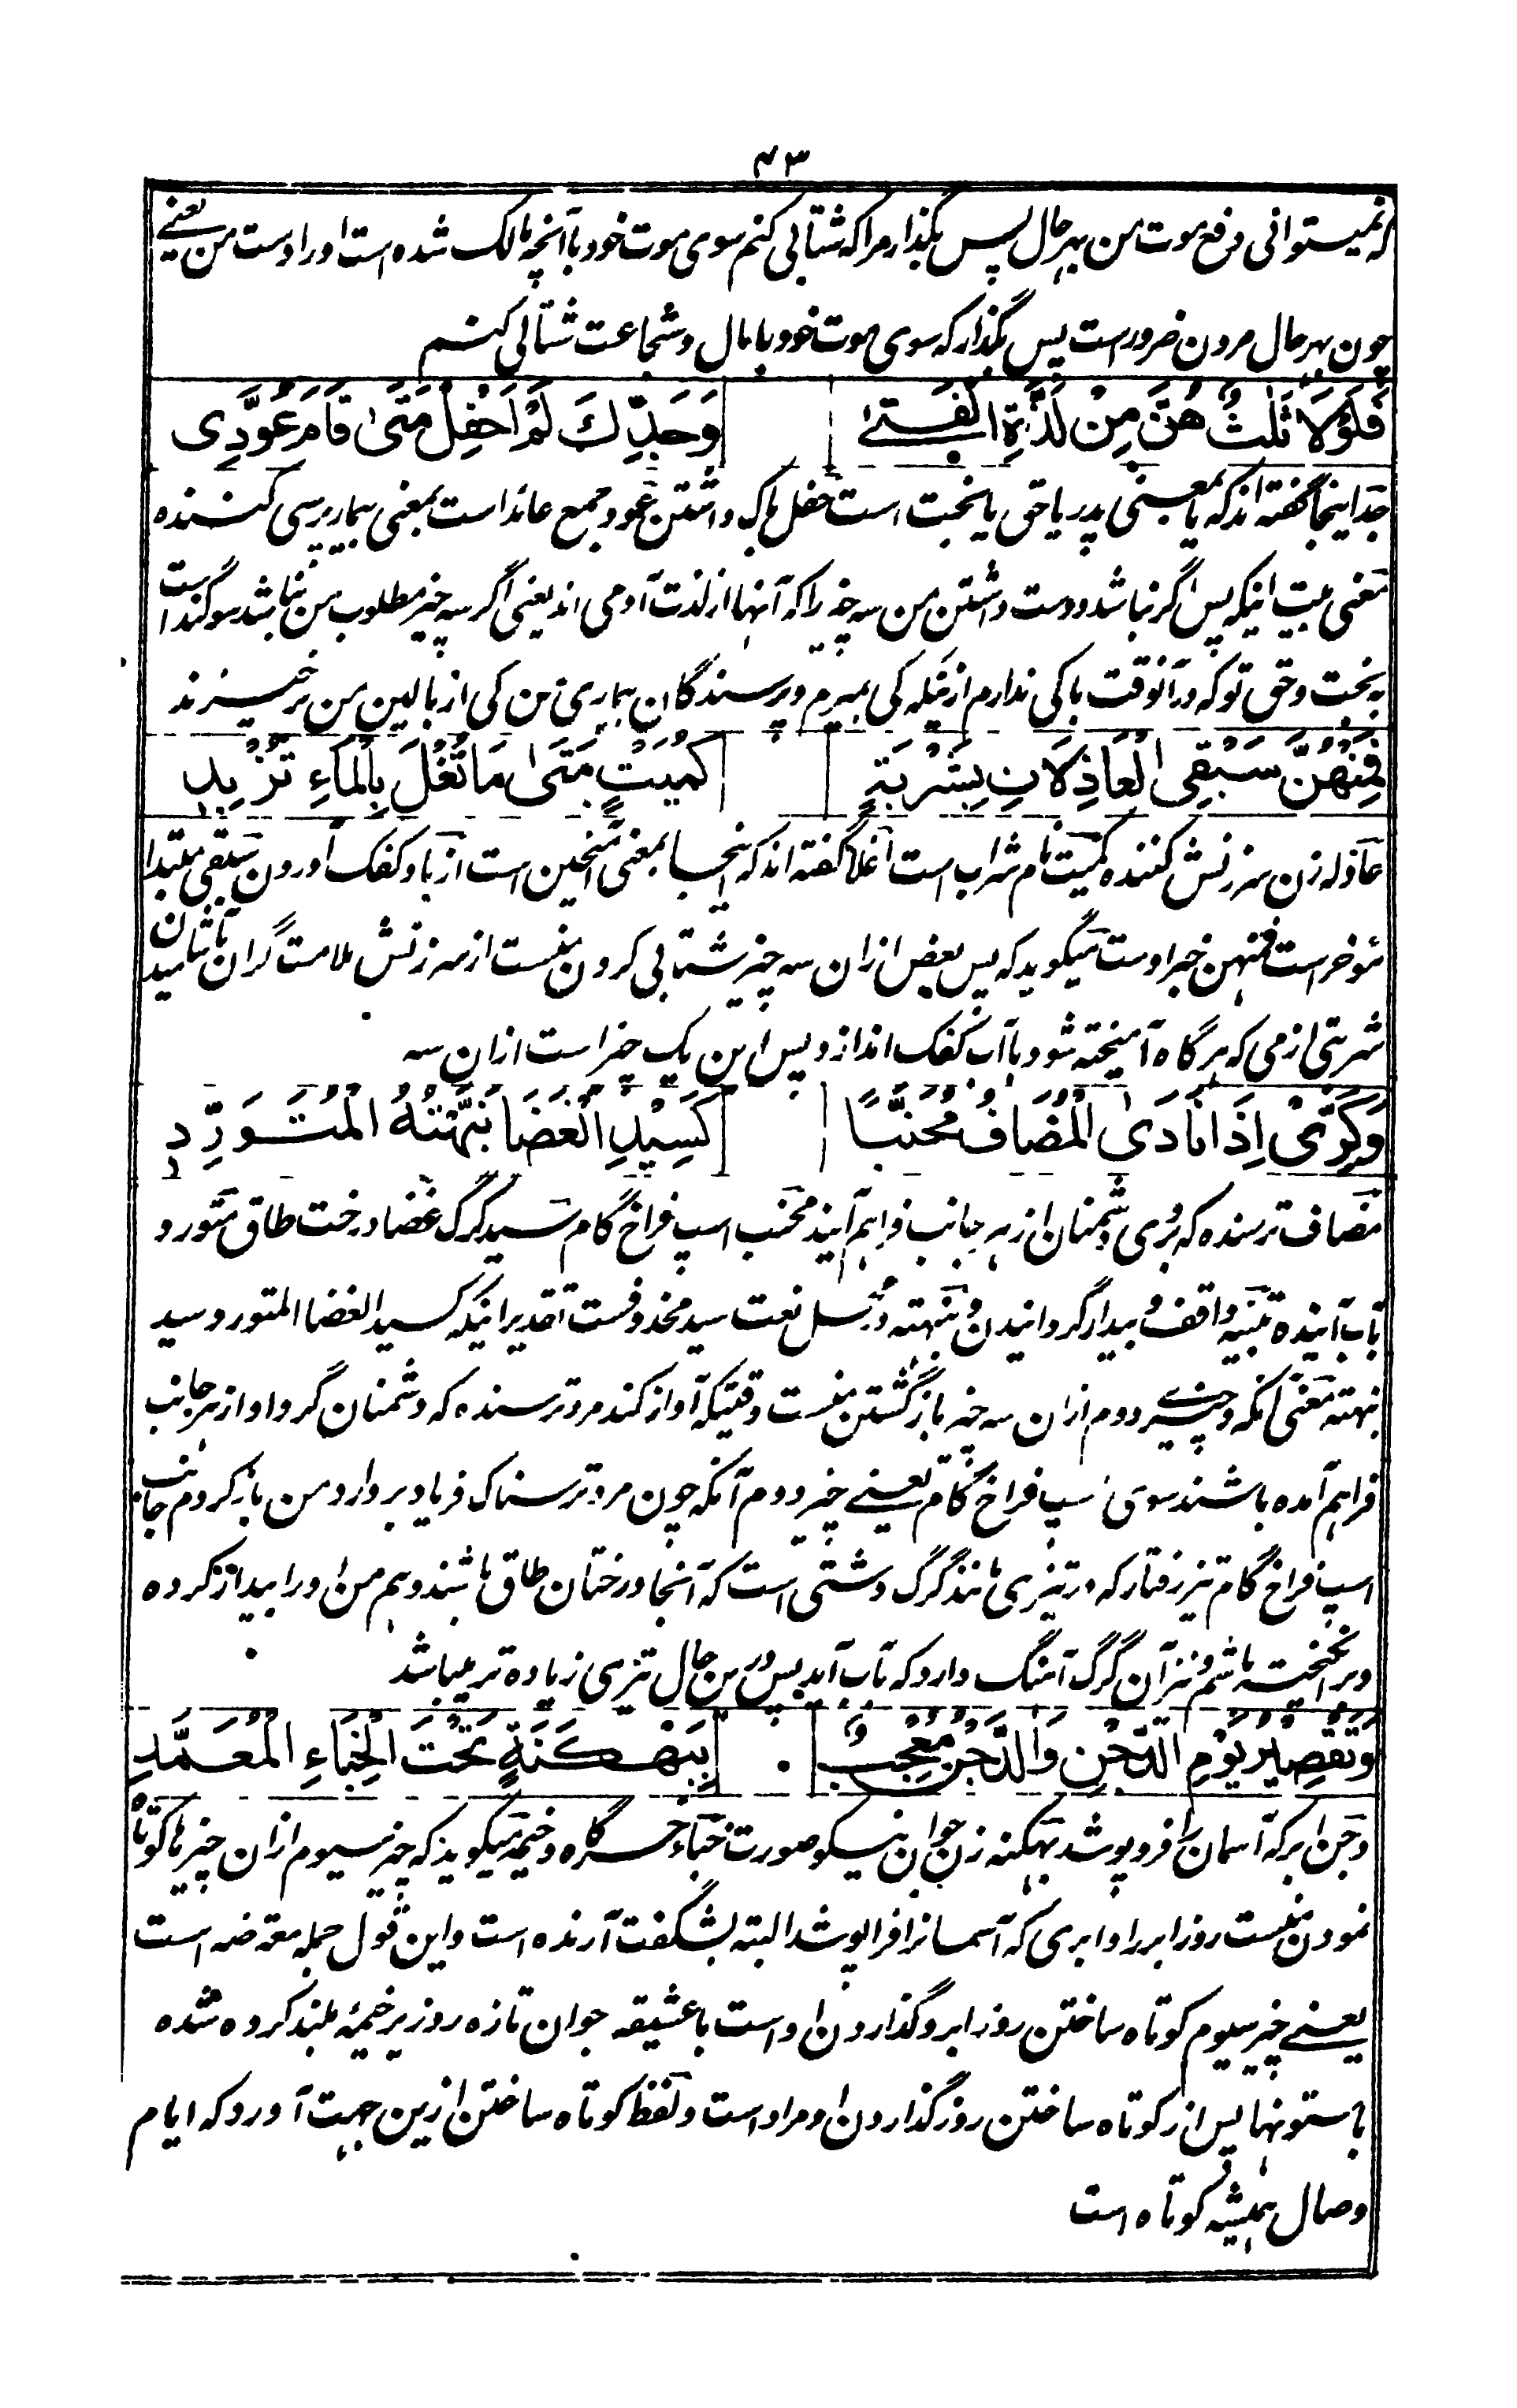 ۴۳
که نمیتوانی دفع موت من بهر حال پس بگذار مرا که شتابی کنم سوی موت خود بآنچه مالک شده است اورا دست من یعنے
چون بهر حال مردن ضرور است پس بگذار که سوی موت خود با مال و شجاعت شتابی کنم
فَلَوْلَا ثَلٰثٌ هُنَّ مِنْ لَذَّةِ الْفَتٰی وَجَدِّكَ لَمْ اَحْفِلْ مَتٰی قَامَ عُوَّدِی
جد اینجا گفته اند که یا بمعنی پدر یا حق یا بخت است حفل باک داشتن عود جمع عائد است بمعنی بیمار پرسی کننده
معنی بیت اینکه پس اگر نباشد دوست داشتن من سه چیز را که آنها از لذت آدمی اند یعنی اگر سه چیز مطلوب من نباشد سوگند است
به بخت و حق تو که در آنوقت باکی ندارم ازینکه کی بمیرم و پرسندگان بیماری من کی از بالین من برخیزند
فَمِنْهُنَّ سَبْقِی الْعَاذِلَاتِ بِشَرْبَةٍ كُمَيْتٍ مَتٰی مَا تُغْلَ بِالْمَاءِ تُزْبِدِ
عاذله زن سرزنش کننده کمیت نام شراب است اغلا گفته اند که اینجا بمعنی آمیختن است ازباد کفک آوردن سبقی مبتدا
مؤخر است فمنهن خبر اوست میگوید که پس بعض ازان سه چیز شتابی کردن منست از سرزنش ملامت گران بآشامیدن
شربتی از می که هر گاه آمیخته شود با آب کفک اندازد پس این یک چیز است ازان سه
وَكَرِّی اِذَا نَادَی الْمُضَافُ مُحَنَّبًا كَسِيْدِ الْغَضَا نَبَّهْتَهُ الْمُتَوَرِّدِ
مضاف ترسنده که بروی دشمنان از هر جانب فراهم آیند محنب اسپ فراخ گام سید گرگ غضا درخت طاق متورد
بآب آینده تنبیه واقف و بیدار گردانیدن و نبهته در اصل نعت سید محذوفست تقدیر اینکه کسید الغضا المتورد سید
نبهته معنی آنکه و چیزے دوم ازان سه چیز بازگشتن منست وقتیکه آواز کند مرد ترسنده که دشمنان گرد او از هر جانب
فراهم آمده باشند سوی اسپ فراخ گام یعنے چیز دوم آنکه چون مرد ترسناک فریاد بردارد من باز گردم جانب
اسپ فراخ گام تیز رفتار که در تیزی مانند گرگ دشتی است که آنجا درختان طاق باشند و هم من اورا بیدار کرده
و برانگیخته باشم و نیز آن گرگ آهنگ دارد که بآب آید پس درین حال تیزی زیاده تر میباشد
وَتَقْصِيْرُ يَوْمِ الدَّجْنِ وَالدَّجْنُ مُعْجِبٌ بِبَهْكَنَةٍ تَحْتَ الْخِبَاءِ الْمُعَمَّدِ
دجن ابر که آسمان را فرو پوشد بهکنه زن جوان نیکو صورت خباء خرگاه و خیمه میگوید که چیز سیوم ازان چیزها کوتاه
نمودن منست روز ابر را و ابری که آسمانرا فرا پوشد البته بشگفت آرنده است و این قول جمله معترضه است
یعنے چیز سیوم کوتاه ساختن روز ابر و گذاردن اوست با عشیقه جوان تازه روز یر خیمهٔ بلند کرده شده
باستونها پس از کوتاه ساختن روز گذاردن او مراد است و لفظ کوتاه ساختن ازین جهت آورد که ایام
وصال همیشه کوتاه است